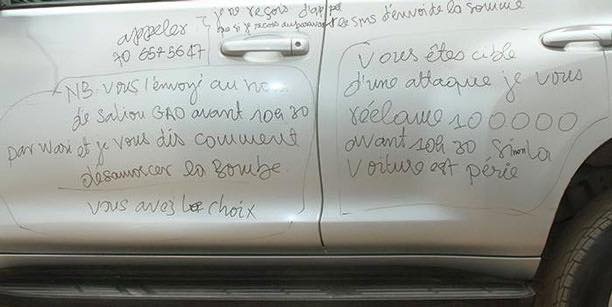 appeler
70 6575647
je ne reçois d'appel
que si je reçois auparavant le sms d'envoi de la somme
Vous êtes cible
d'une attaque je vous
réclame 100000
avant 10h 30 sinon la
voiture est périe
NB. vous l'envoyé au nom
de Saliou GRO avant 10h 30
par wari et je vous dis comment
désamorcer la bombe
vous avez le choix